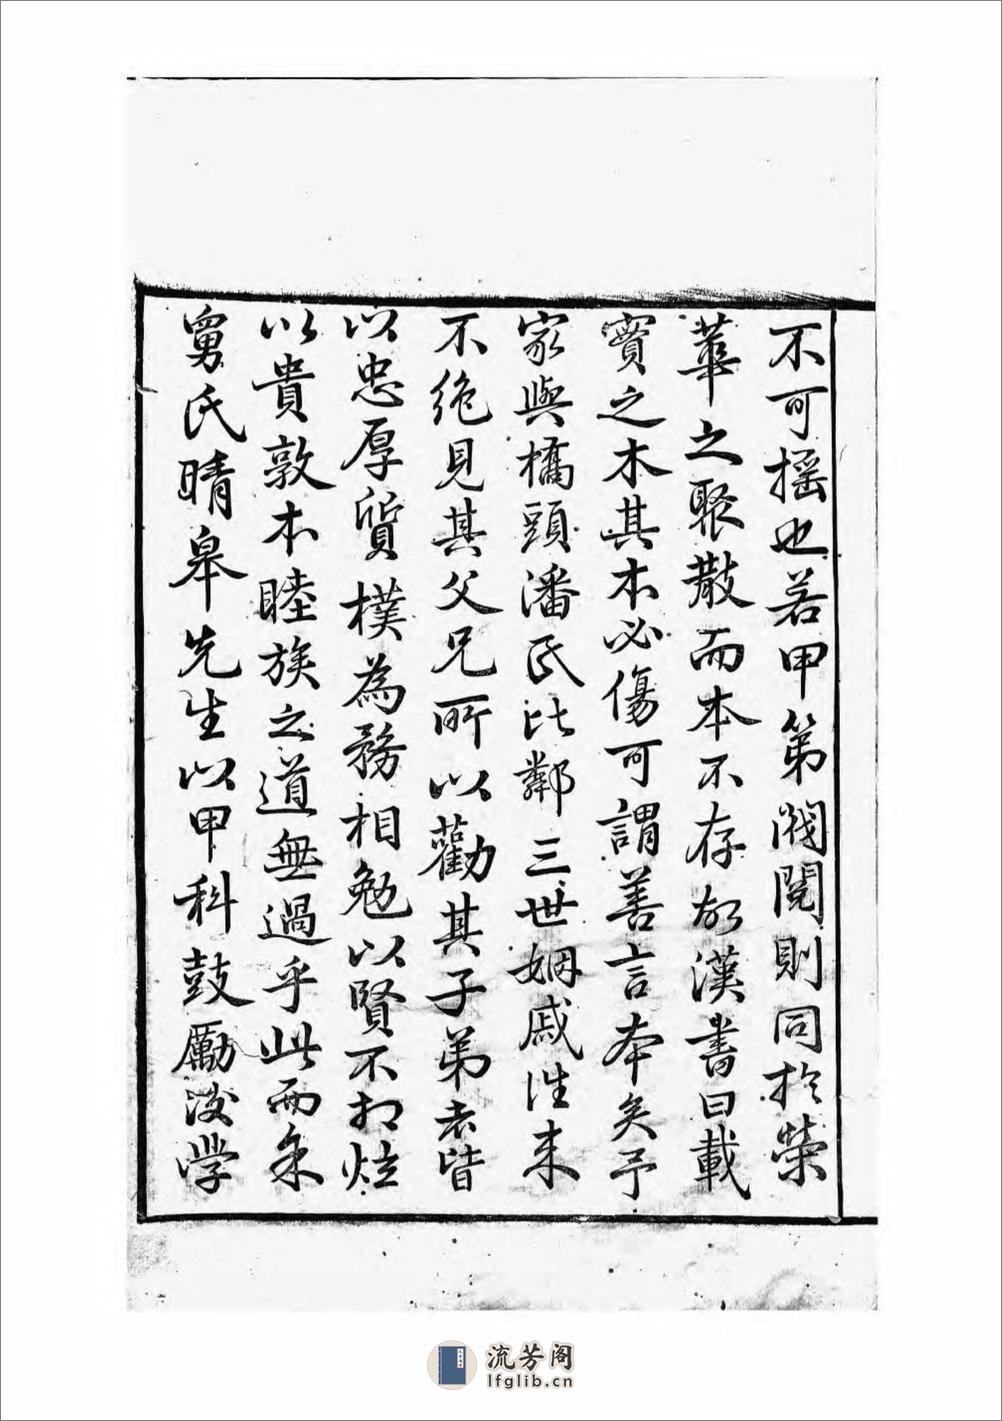 不可搖也若甲第閥閱則同於榮
華之聚散而本不存故漢書曰載
實之木其本必傷可謂善言本矣予
家與橋頭潘氏比鄰三世姻戚往來
不絶見其父兄所以勸其子弟者皆
以忠厚質樸為務相勉以賢不相炫
以貴敦本睦族之道無過乎此而余
舅氏晴皋先生以甲科鼓勵後學
流芳阁
lfglib.cn